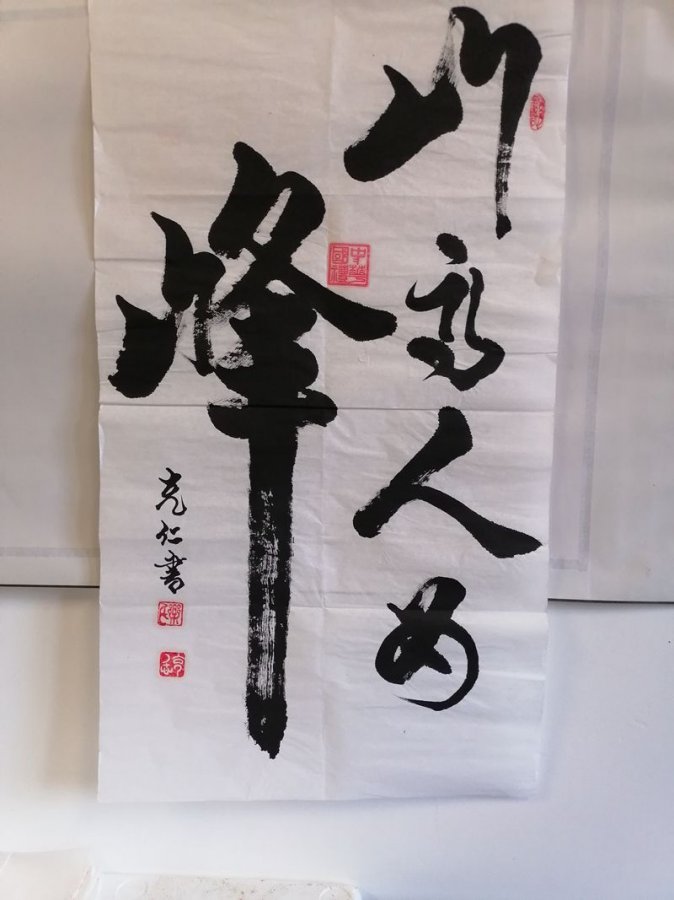 山高人为峰
中華國禮
克仁書